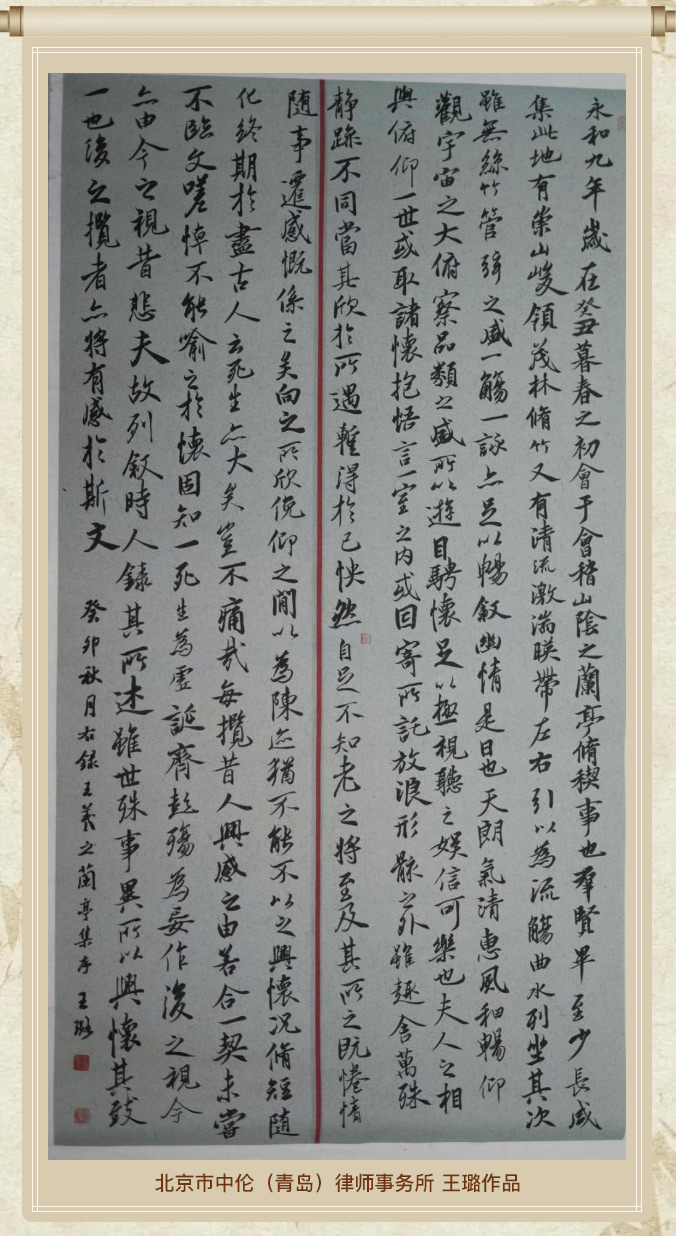 永和九年歲在癸丑暮春之初會于會稽山陰之蘭亭脩稧事也羣賢畢至少長咸
集此地有崇山峻領茂林脩竹又有清流激湍暎帶左右引以為流觴曲水列坐其次
雖無絲竹管弦之盛一觴一詠亦足以暢敘幽情是日也天朗氣清惠風和暢仰
觀宇宙之大俯察品類之盛所以遊目騁懷足以極視聽之娛信可樂也夫人之相
與俯仰一世或取諸懷抱悟言一室之內或因寄所託放浪形骸之外雖趣舍萬殊
靜躁不同當其欣於所遇暫得於己怏然自足不知老之將至及其所之既惓情
随事遷感慨係之矣向之所欣俛仰之間以為陳迹猶不能不以之興懷況脩短隨
化終期於盡古人云死生亦大矣豈不痛哉每攬昔人興感之由若合一契未嘗
不臨文嗟悼不能喻之於懷固知一死生為虛誕齊彭殤為妄作後之視今
亦由今之視昔悲夫故列敘時人錄其所述雖世殊事異所以興懷其致
一也後之攬者亦將有感於斯文
癸卯秋月右録王羲之蘭亭集序 王璐
北京市中伦（青岛）律师事务所 王璐作品